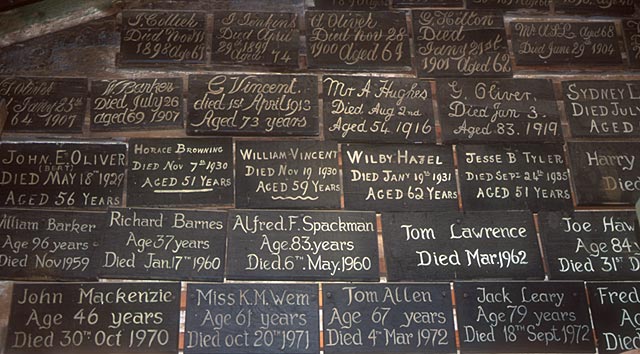 J. Collick
Died Nov 11
1898 Aged 61
J. Jenkins
Died April
29th 1899
Aged 74
H. Oliver
Died Nov 28
1900 Aged 61
G. Hilton
Died
Jany 21st
1901 Aged 62
Aged 68
Died June 29th 1904
Oliver
Jany 25th
64 1907
W. Barker
Died July 26
aged 69 1907
C Vincent.
died 1st April 1913
Aged 73 years
Mr A Hughes
Died Aug 2nd
Aged 54 1916
G. Oliver.
Died Jan 3.
Aged. 83. 1919
Sydney
Died Jul
Aged
John. E. Oliver
(Bert)
Died May 18th 1929
Aged 56 Years
Horace Browning
Died Nov 7th 1930
Aged 51 Years
William Vincent
Died Nov 19 1930
Aged 59 Years
Wilby Hazel
Died Jany 19th 1931
Aged 62 Years
Jesse B Tyler
Died Sept 24th 1935
Aged 51 Years
Harry
Died
William Barker
Age 96 years
Died Nov 1959
Richard Barnes
Age 37 years
Died Jan. 17th 1960
Alfred. F. Spackman
Age. 83. years
Died. 6th. May. 1960
Tom Lawrence
Died Mar. 1962
Joe Haw
Age 84
Died 31st D
John Mackenzie
Age 46 years
Died 30th Oct 1970
Miss K.M. Wem
Age 61 years
Died oct 20th 1971
Tom Allen
Age 67 years
Died 4th Mar 1972
Jack Leary
Age 79 years
Died 18th Sept 1972
Fred
Age
Died